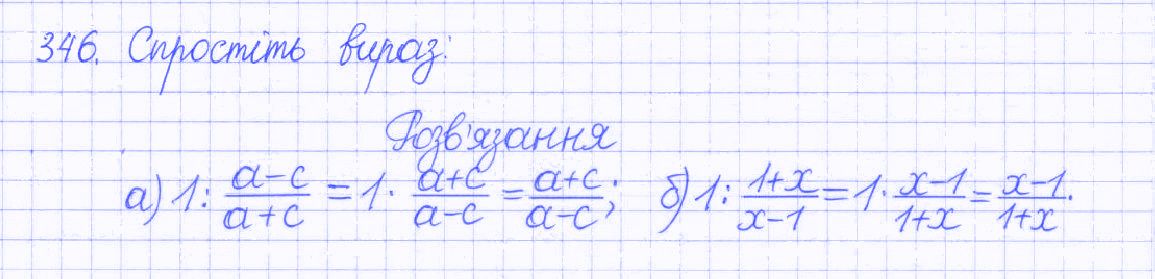 346. Спростіть вираз:
Розв'язання
а) 1 : \frac{a-c}{a+c} = 1 · \frac{a+c}{a-c} = \frac{a+c}{a-c}; б) 1 : \frac{1+x}{x-1} = 1 · \frac{x-1}{1+x} = \frac{x-1}{1+x}.